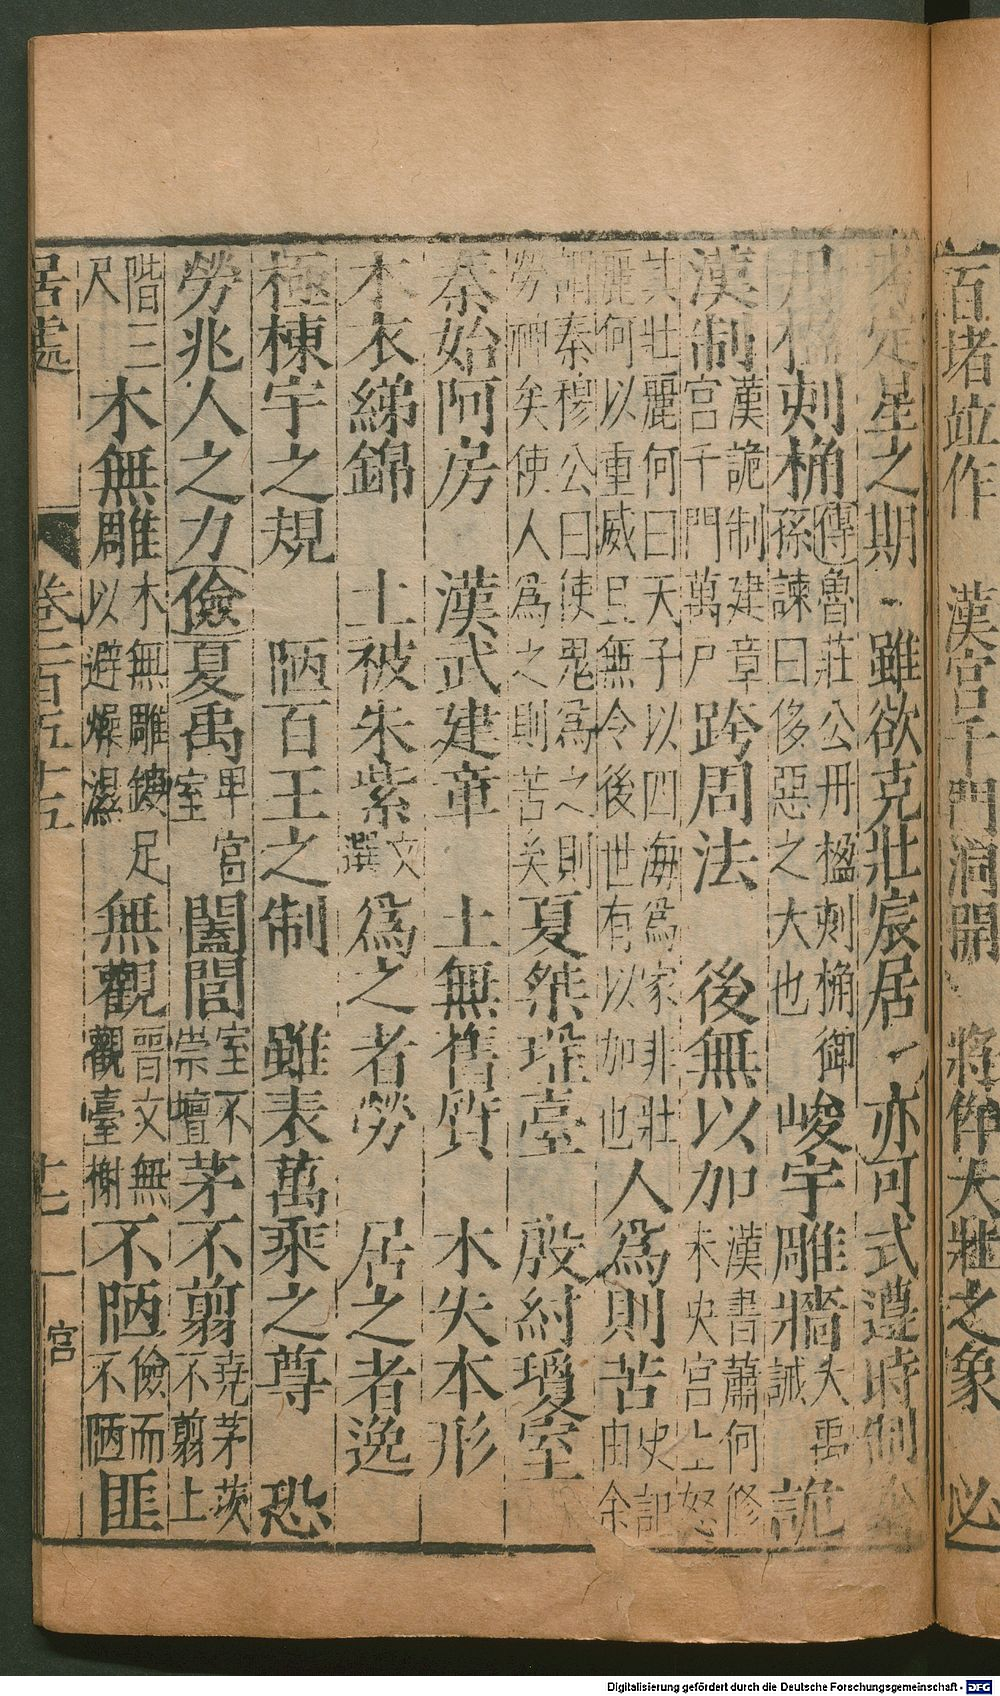 百堵竝作 漢宮千門洞開 將作大壯之象 必
定星之期 雖欲克壯宸居 亦可式遵時制
丹楹刻桷 傳魯莊公丹楹刻桷御孫諫曰侈惡之大也 峻宇雕牆 大禹誡 詭
漢制 漢詭制建章宮千門萬戶 跨周法 後無以加 漢書蕭何修未央宮上怒
其壯麗何曰天子以四海為家非壯麗何以重威且無令後世有以加也 人為則苦 史記由余
謂秦穆公曰使鬼為之則勞神矣使人為之則苦矣 夏桀瑤臺 殷紂瓊室
秦始阿房 漢武建章 土無舊質 木失本形
木衣綈錦 土被朱紫 文選 為之者勞 居之者逸
極棟宇之規 陋百王之制 雖表萬乘之尊 恐
勞兆人之力 儉 夏禹 卑宮室 闔閭 室不崇壇 茅不翦 堯茅茨不翦土
階三尺 木無雕 木無雕鏤足以避燥濕 無觀 晉文無觀臺榭 不陋 儉而不陋 匪
居處 卷二百五十五 十七 宮
Digitalisierung gefördert durch die Deutsche Forschungsgemeinschaft - DFG